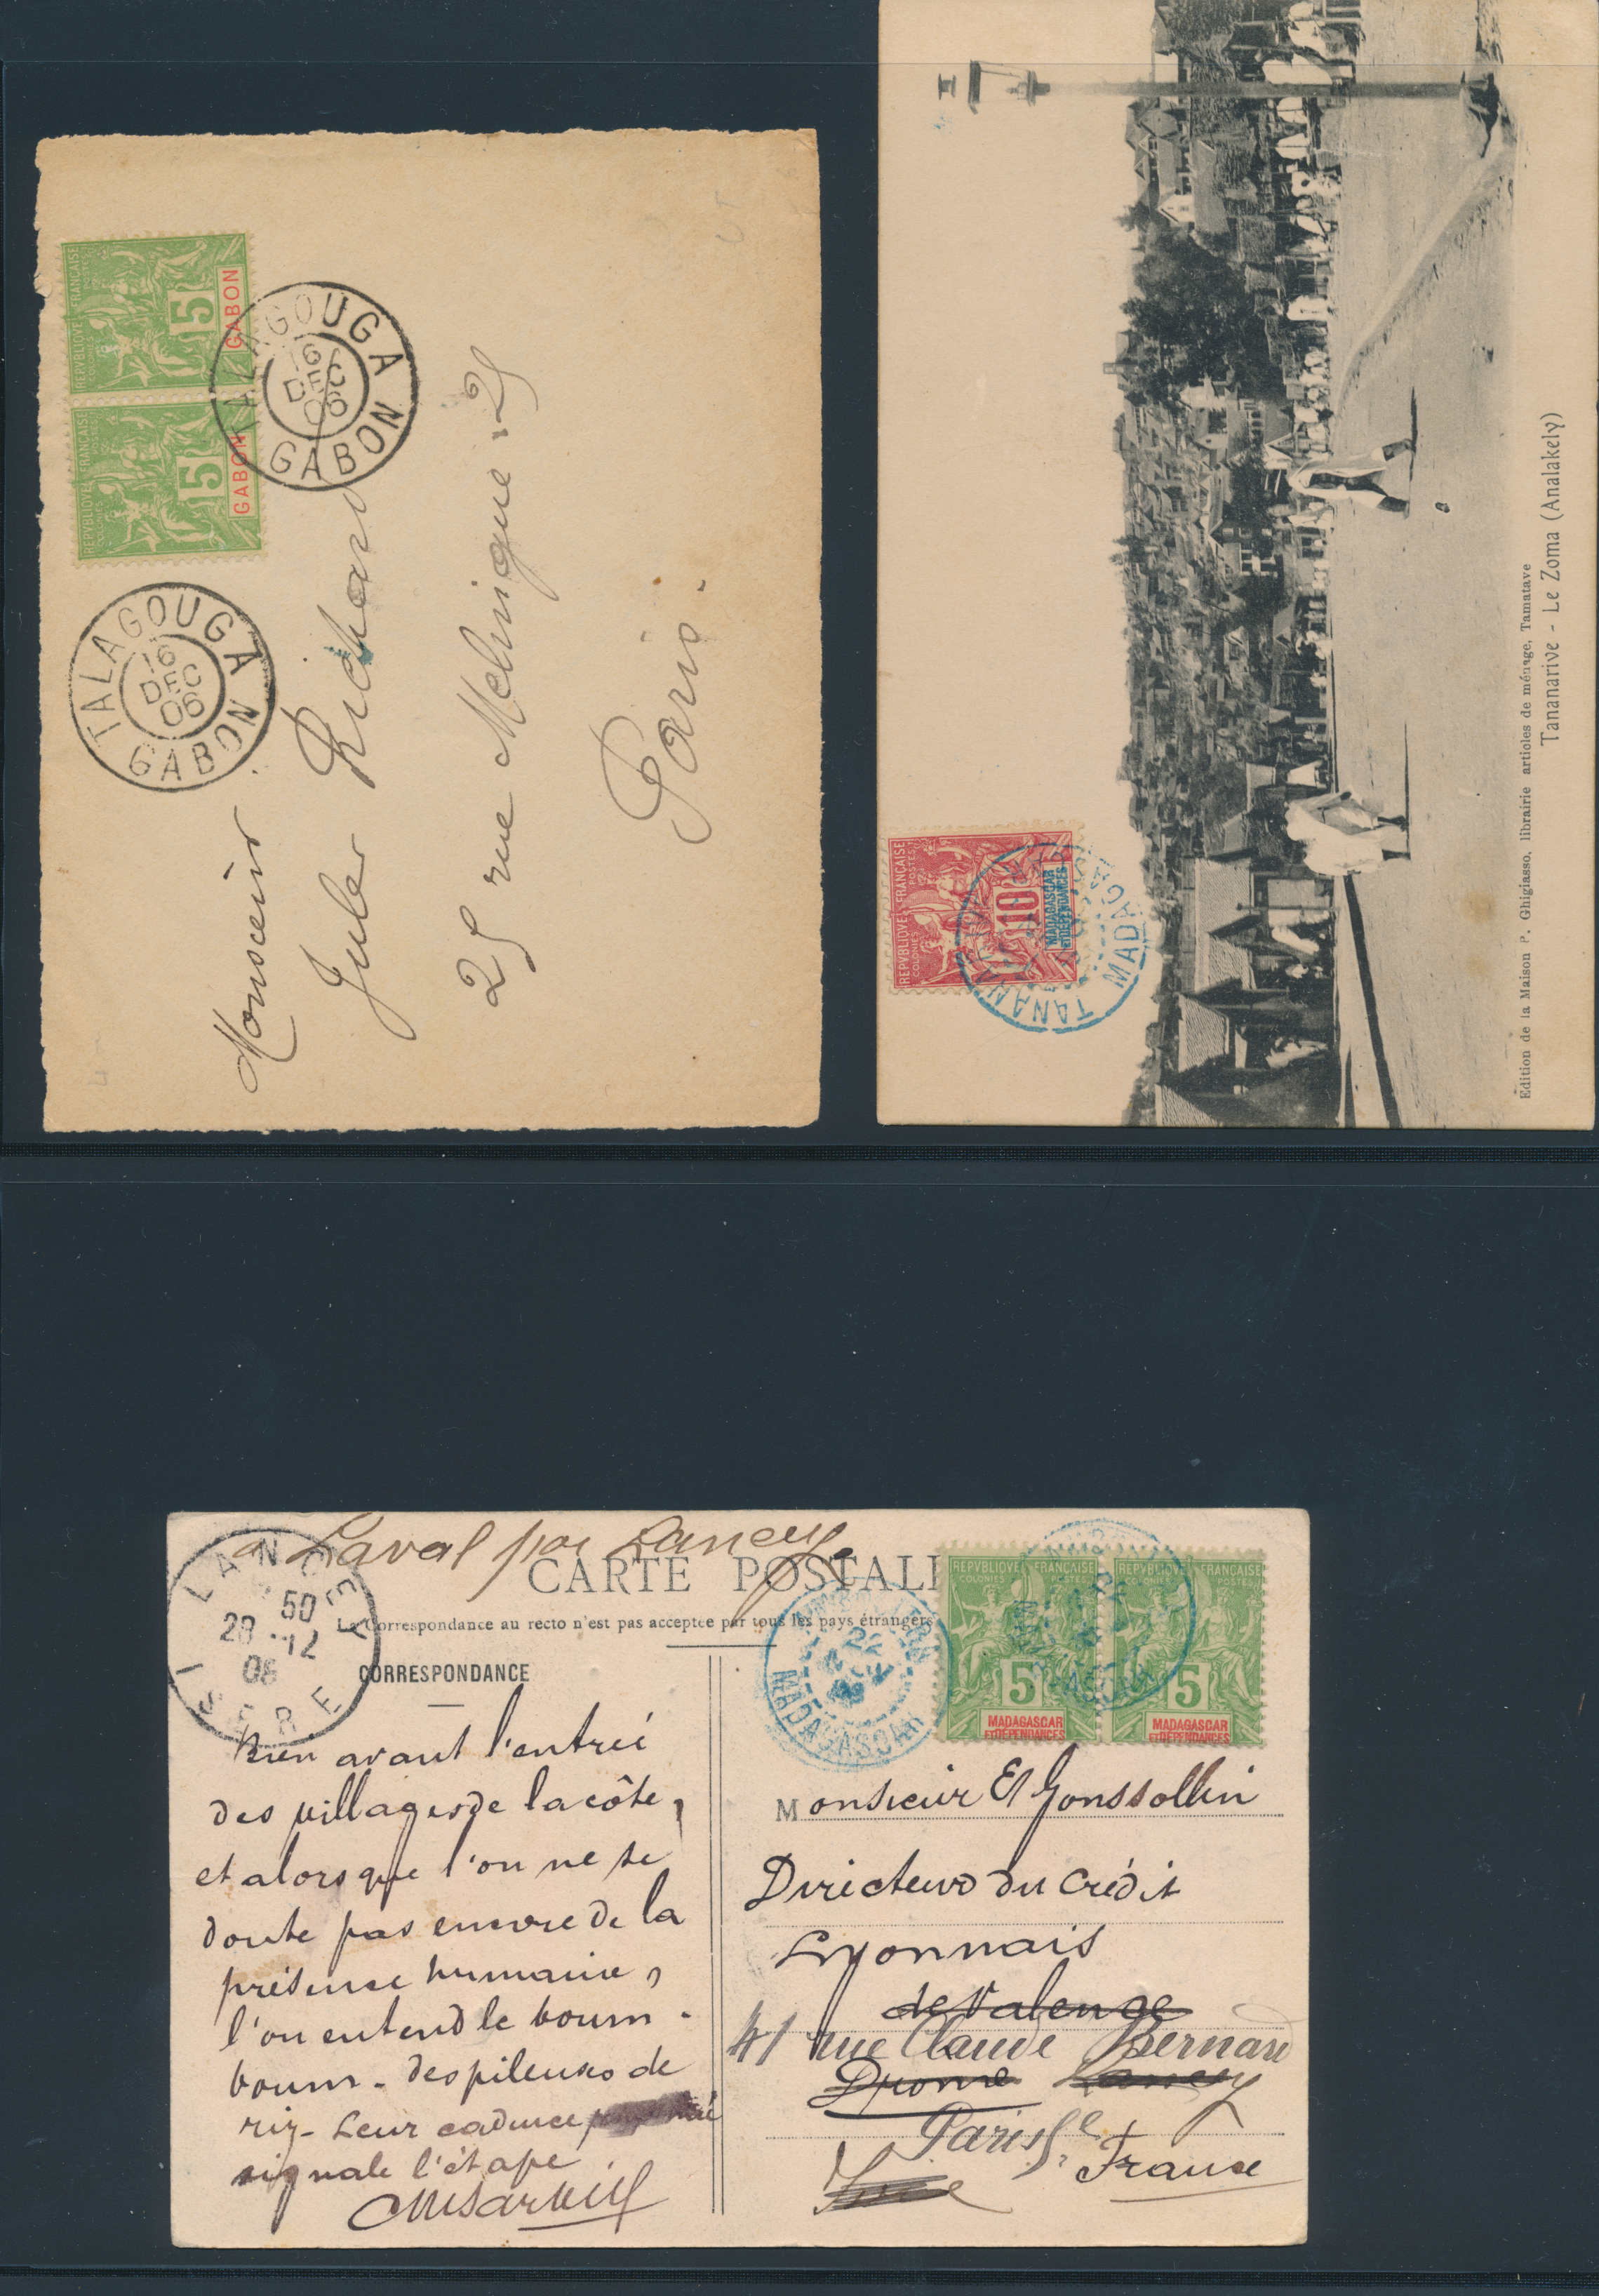 REPVBLIQVE FRANÇAISE
COLONIES POSTES
5
GABON
REPVBLIQVE FRANÇAISE
COLONIES POSTES
5
GABON
TALAGOUGA
16
DEC
06
GABON
TALAGOUGA
16
DEC
06
GABON
Monsieur
Jules Richard
25 rue Melingue 25
Paris
REPVBLIQVE FRANÇAISE
COLONIES POSTES
10
MADAGASCAR
ET DÉPENDANCES
MADAGASCAR
Edition de la Maison P. Ghigiasso, librairie articles de ménage, Tamatave
Tananarive - Le Zoma (Analakely)
à Laval par Lancey
CARTE POSTALE
La Correspondance au recto n'est pas acceptée par tous les pays étrangers
CORRESPONDANCE
LANCEY
50
28 - 12
08
ISERE
22
MADAGASCAR
REPVBLIQVE FRANÇAISE
COLONIES POSTES
5
MADAGASCAR
ET DÉPENDANCES
REPVBLIQVE FRANÇAISE
COLONIES POSTES
5
MADAGASCAR
ET DÉPENDANCES
Bien avant l'entrée
des villages de la côte,
et alors que l'on ne se
doute pas encore de la
présence humaine,
l'on entend le boum-
boum - des pileuses de
riz - Leur cadence
signale l'étape
Monsieur El Gonssollin
Directeur du Crédit
Lyonnais
de Valence
41 rue Claude Bernard
Drome Lancey
Paris Se
Isère
France